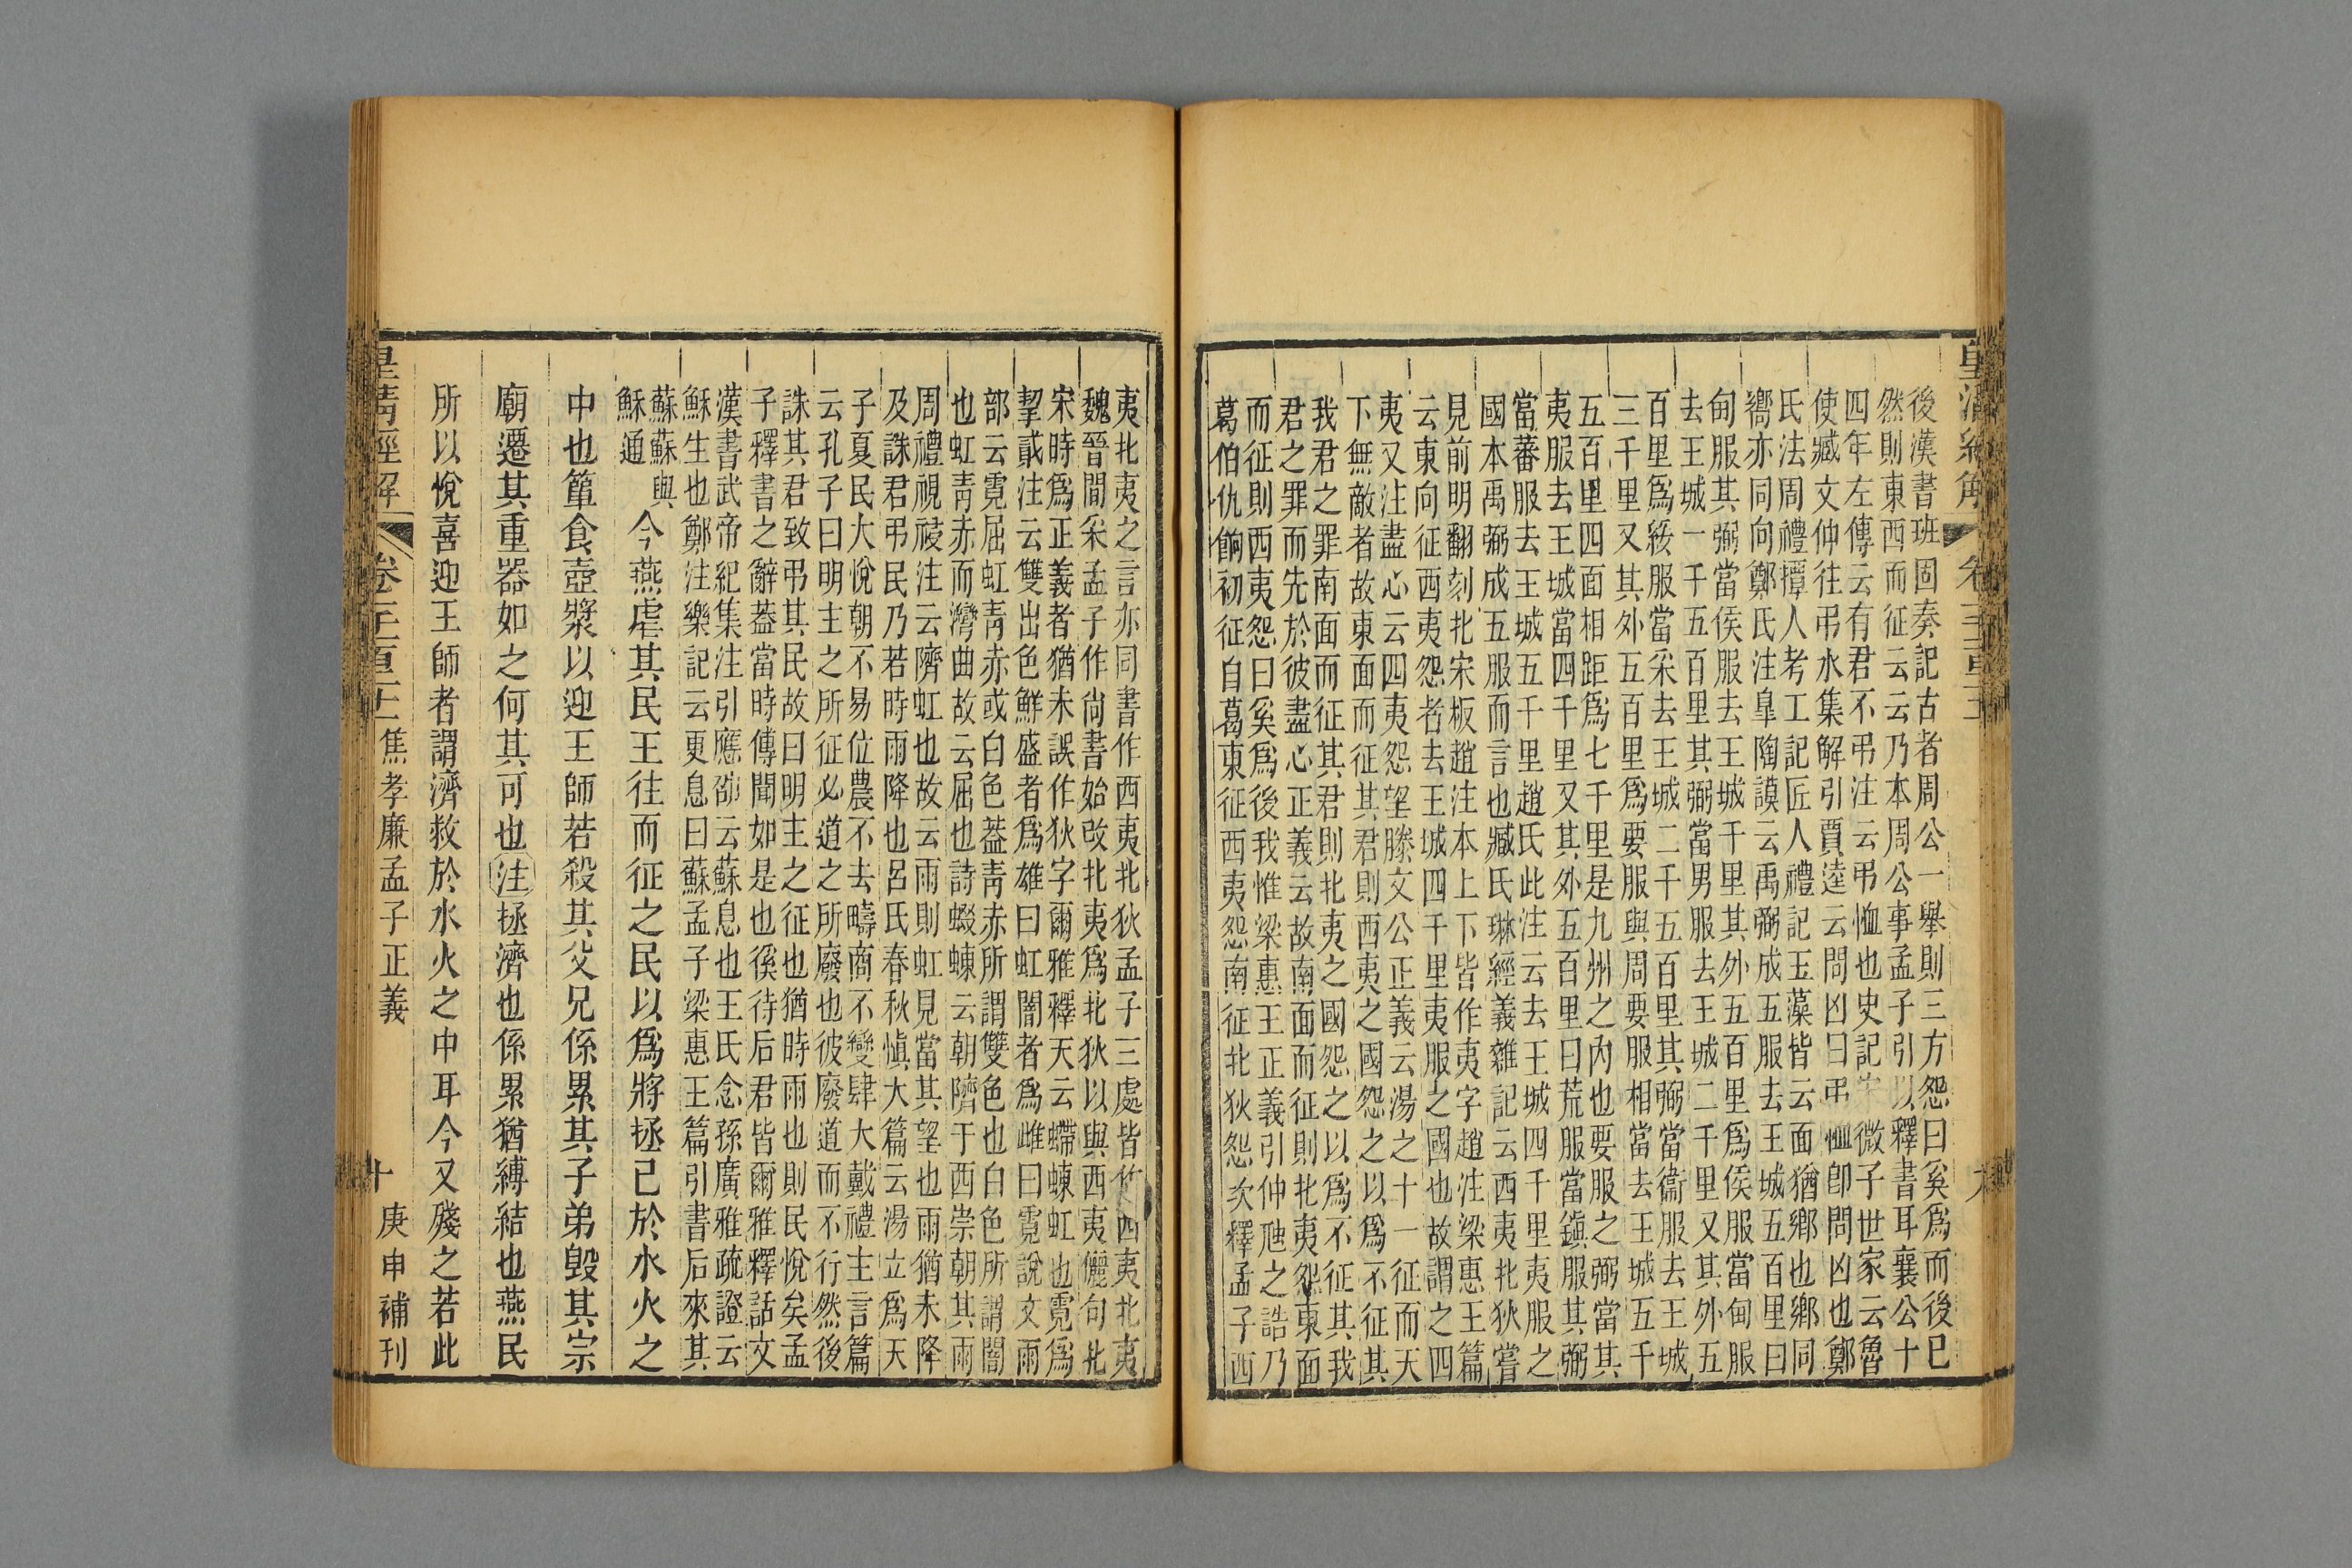 皇清經解
卷
後漢書班固奏記古者周公一舉則三方怨曰奚爲而後已
然則東西而征云云乃本周公事孟子引以釋書耳襄公十
四年左傳云有君不弔注云弔恤也史記宋微子世家云魯
使臧文仲往弔水集解引賈逵云問凶曰弔恤卽問凶也鄭
氏法周禮撢人考工記匠人禮記玉藻皆云面猶鄉也鄉同
嚮亦同向鄭氏注臯陶謨云禹弼成五服去王城五百里曰
甸服其弼當侯服去王城千里其外五百里爲侯服當甸服
去王城一千五百里其弼當男服去王城二千里又其外五
百里爲綏服當采去王城二千五百里其弼當衞服去王城
三千里又其外五百里爲要服與周要服相當去王城五千
五百里四面相距爲七千里是九州之內也要服之弼當其
夷服去王城當四千里又其外五百里曰荒服當鎮服其弼
當蕃服去王城五千里趙氏此注云去王城四千里夷服之
國本禹弼成五服而言也臧氏琳經義雜記云西夷北狄嘗
見前明翻刻北宋板趙注本上下皆作夷字趙注梁惠王篇
云東向征西夷怨者去王城四千里夷服之國也故謂之四
夷又注盡心云四夷怨望滕文公正義云湯之十一征而天
下無敵者故東面而征其君則西夷之國怨之以爲不征其
我君之罪南面而征其君則北夷之國怨之以爲不征其我
君之罪而先於彼盡心正義云故南面而征則北夷怨東面
而征則西夷怨曰奚爲後我惟梁惠王正義引仲虺之誥乃
葛伯仇餉初征自葛東征西夷怨南征北狄怨次釋孟子西
夷北夷之言亦同書作西夷北狄孟子三處皆作西夷北夷
魏晉閒采孟子作尙書始改北夷爲北狄以與西夷儷句北
宋時爲正義者猶未誤作狄字爾雅釋天云螮蝀虹也霓爲
挈貳注云雙出色鮮盛者爲雄曰虹闇者爲雌曰霓說文雨
部云霓屈虹青赤或白色葢青赤所謂雙色也白色所謂闇
也虹青赤而灣曲故云屈也詩蝃蝀云朝隮于西崇朝其雨
周禮視祲注云隮虹也故云雨則虹見當其望也雨猶未降
及誅君弔民乃若時雨降也呂氏春秋愼大篇云湯立爲天
子夏民大悅朝不易位農不去疇商不變肆大戴禮主言篇
云孔子曰明主之所征必道之所廢也彼廢道而不行然後
誅其君致弔其民故曰明主之征也猶時雨也則民悅矣孟
子釋書之辭葢當時傳聞如是也徯待后君皆爾雅釋詁文
漢書武帝紀集注引應劭云蘇息也王氏念孫廣雅疏證云
穌生也鄭注樂記云更息曰蘇孟子梁惠王篇引書后來其
蘇蘇與
穌通
今燕虐其民王往而征之民以爲將拯己於水火之
中也簞食壺漿以迎王師若殺其父兄係累其子弟毀其宗
廟遷其重器如之何其可也注拯濟也係累猶縛結也燕民
所以悅喜迎王師者謂濟救於水火之中耳今又殘之若此
皇清經解
卷
焦孝廉孟子正義
十
庚申補刊